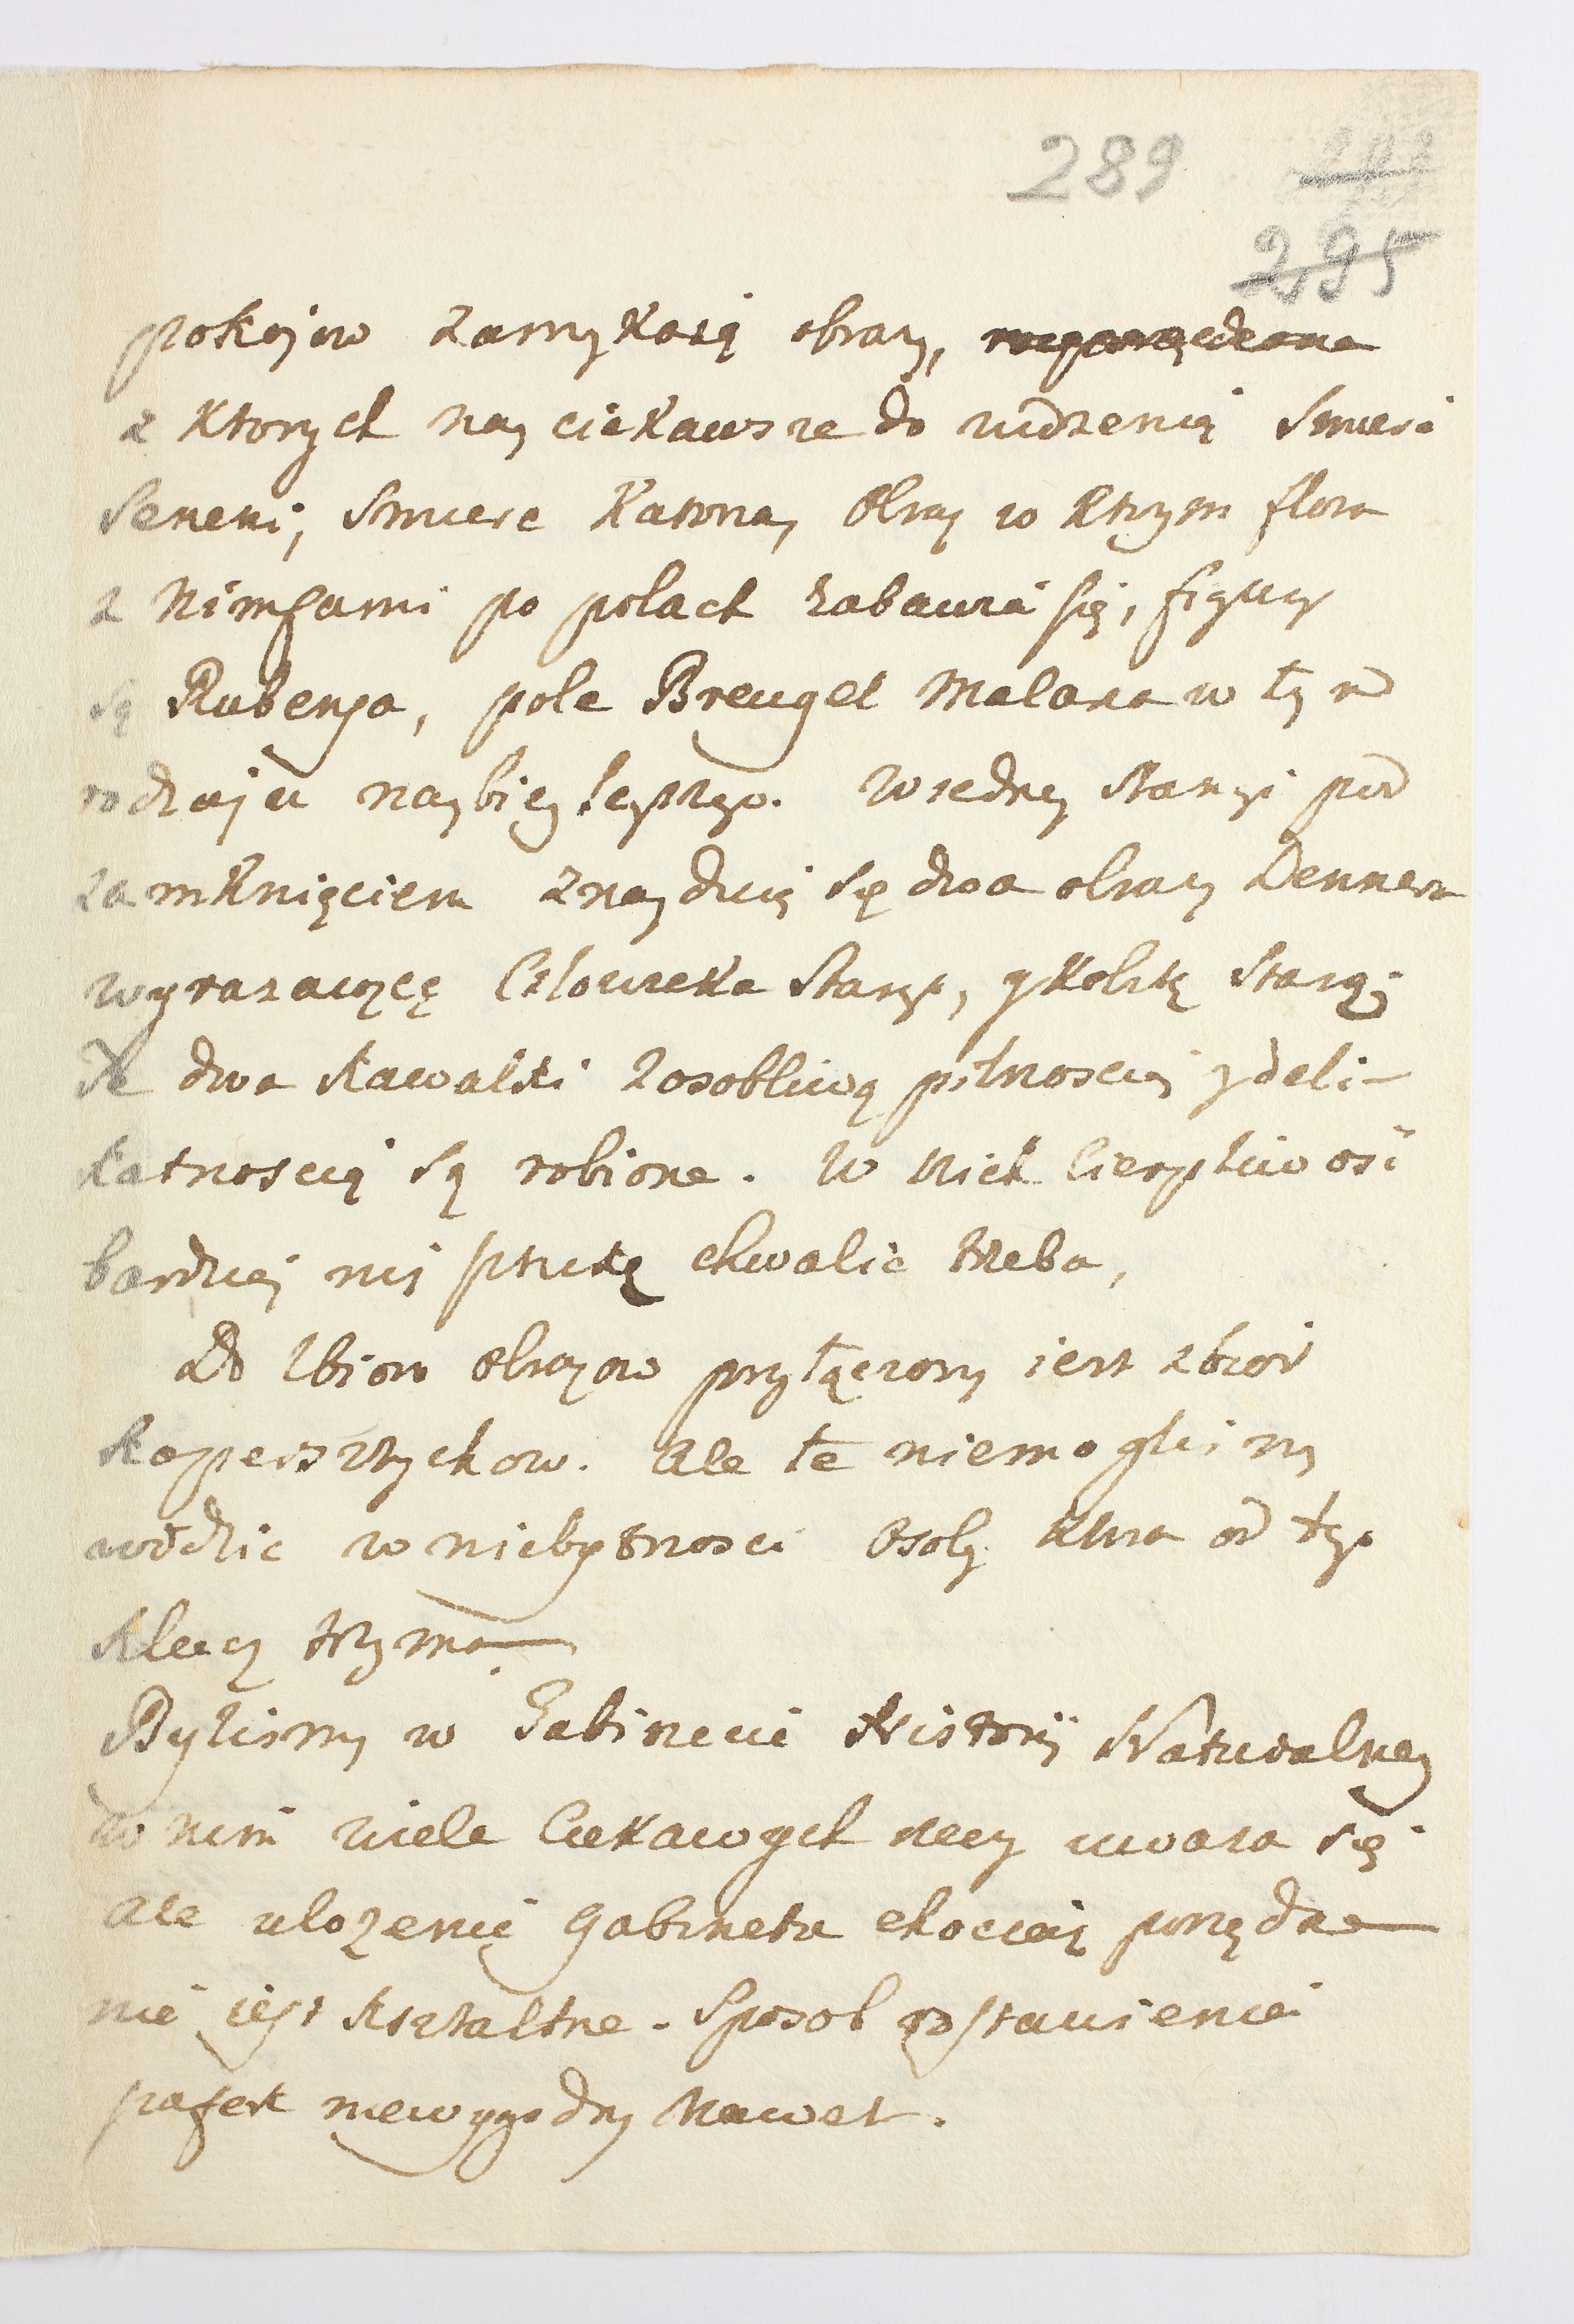 289
295
pokojow zamykaią obrazy,
z ktorych nayciekawsze do widzenią Smierć
Seneki, Smierc Katona, Obraz w ktorym flora
z Nimfami po polach zabawia się, figury
są Rubensa, pole Breugel Malarza w tym
rodzaju naybiegleyszego. W iedney stancyi pod
zamknięciem znayduią się dwa obrazy Dennera
wyrazaiącę Człowieka Starego, y kobitę Starą.
Te dwa kawałki z osobliwą pilnoscią y deli-
katnoscią są robione. W nich Cierpliwość
bardziey niz sztukę chwalić trzeba,
Do Zbioru Obrazow przyłączony iest zbior
kopersztychow. Ale te niemoglismy
widzic w niebytnosci Osoby ktora od tego
klucz trzyma
Bylismy w Gabinecie Historii Naturalney
w nim wiele Ciekawych rzeczy uwaza się
ale ulozenię Gabinetu chociaz porządne
nie iest kształtne. Sposob rozstawienia
szafek niewygodny nawet.